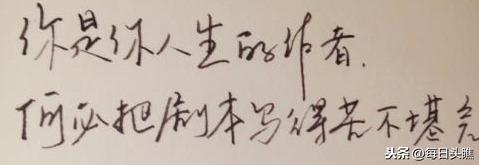 你是你人生的作者,
何必把剧本写得苦不堪言
头条@每日头瞧